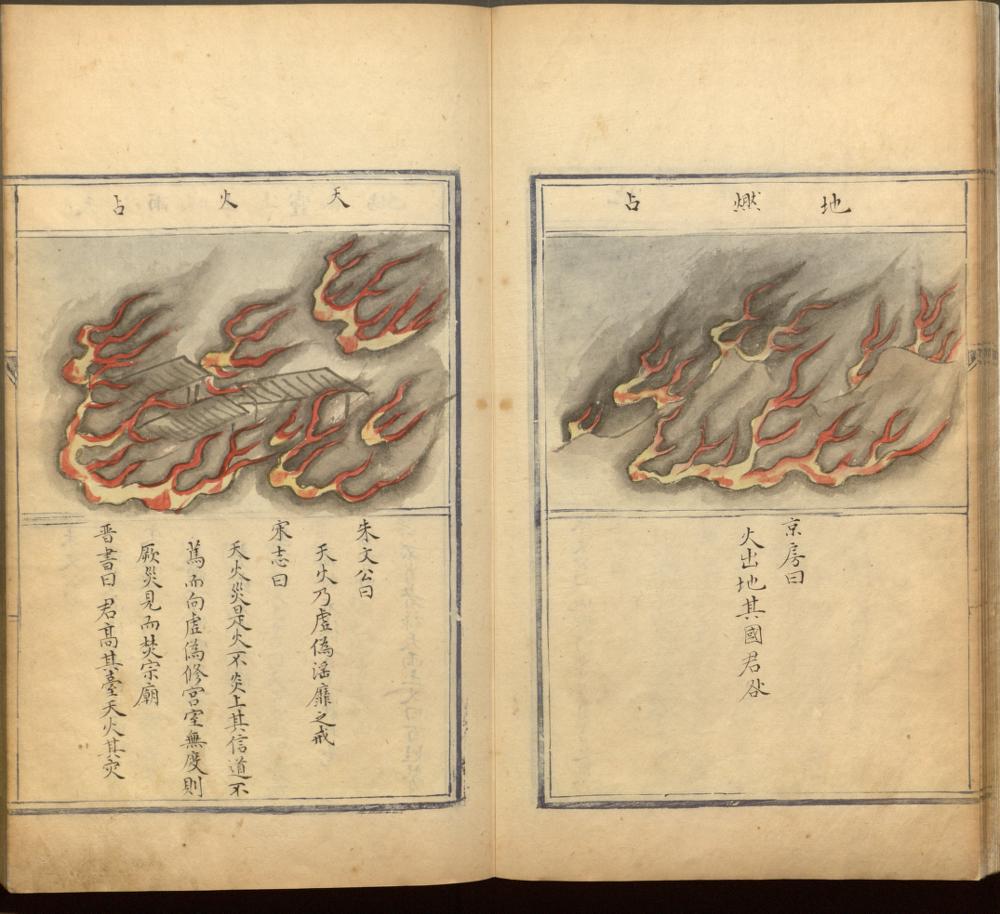 地燃占
京房曰
火出地其國君咎
天火占
朱文公曰
天火乃虛偽淫靡之戒
宋志曰
天火災是火不炎上其信道不
篤而向虛偽修宮室無度則
厥災見而焚宗廟
晋書曰君高其臺天火其灾